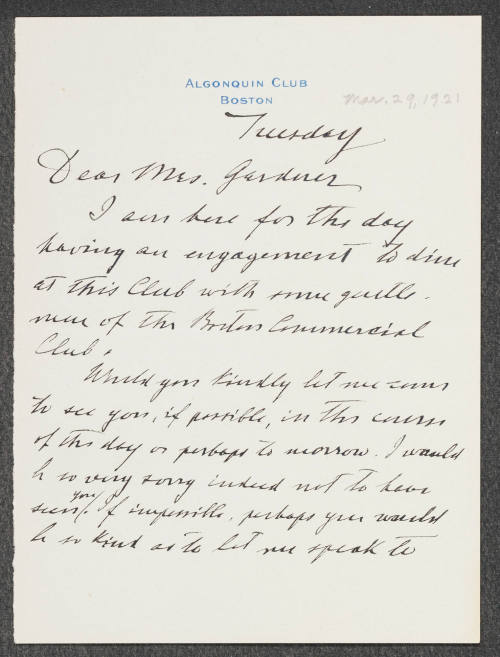 ALGONQUIN CLUB
BOSTON
Mar. 29, 1921
Tuesday
Dear Mrs. Gardner
I am here for the day
having an engagement to dine
at this Club with some gentle-
men of the Boston Commercial
Club.
Would you kindly let me come
to see you, if possible, in the course
of the day or perhaps to morrow. I would
be so very sorry indeed not to have
seen you. If impossible, perhaps you would
be so kind as to let me speak to